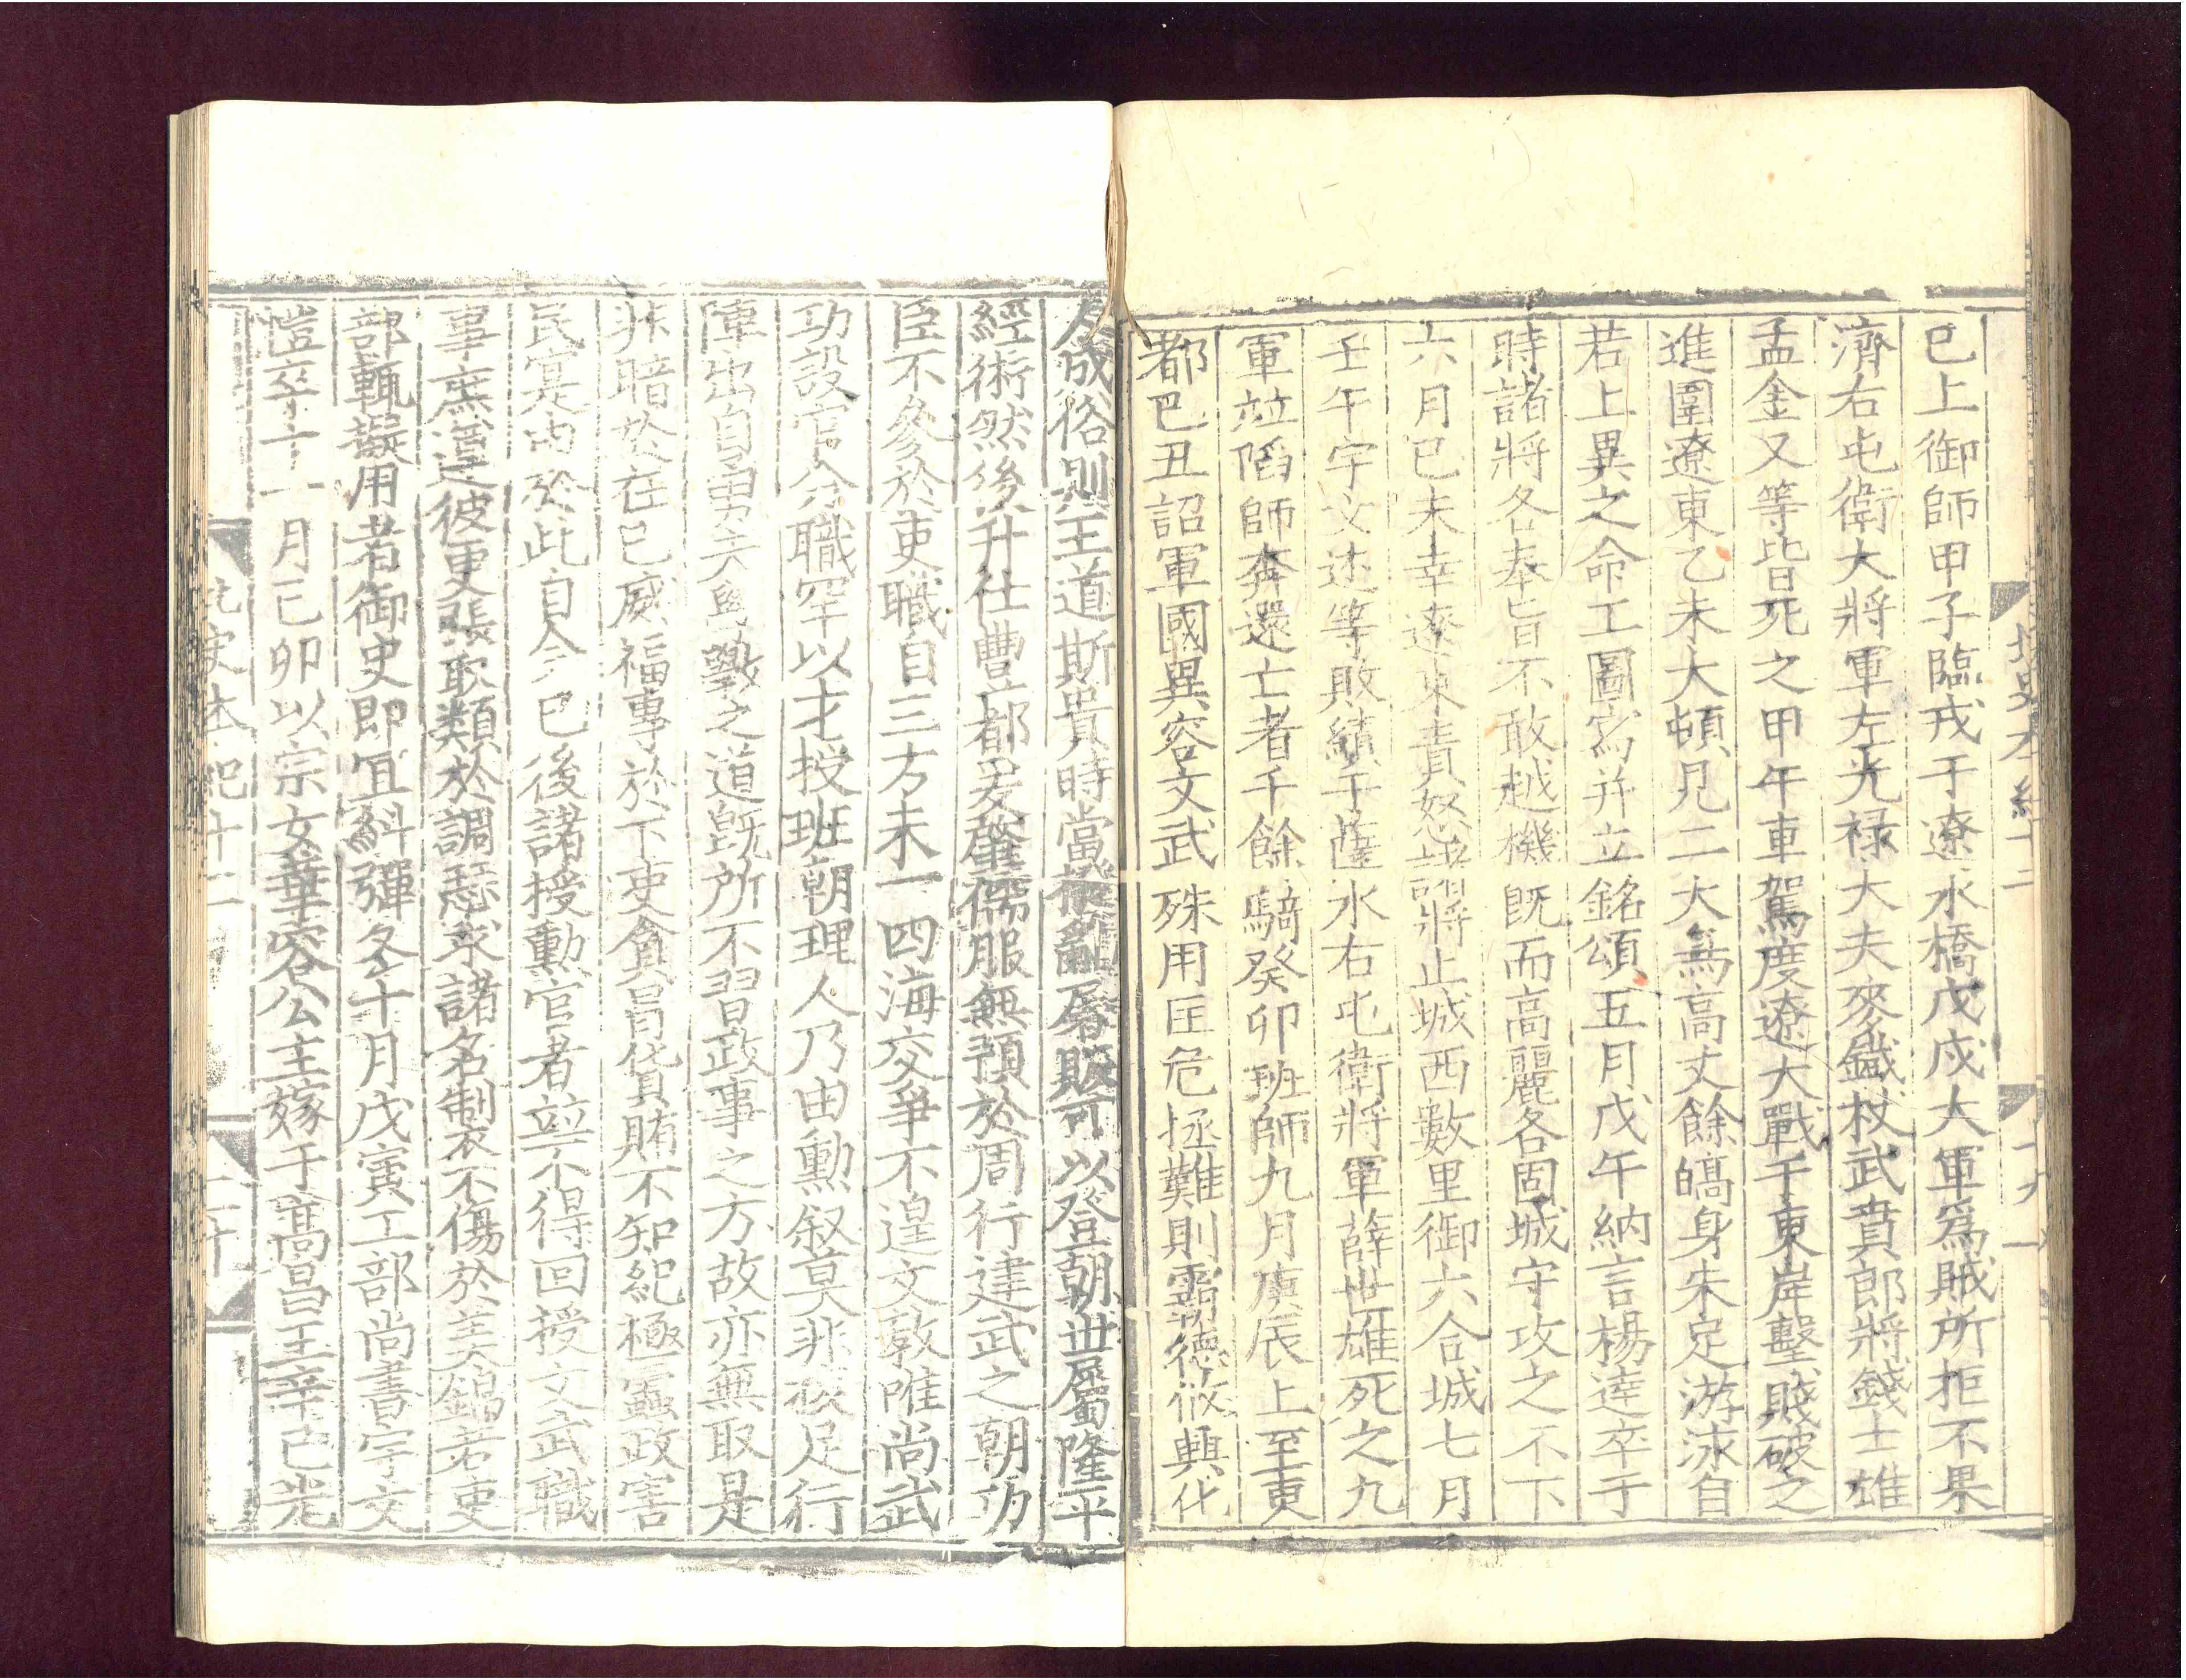 已上御師甲子臨戎于遼水橋戊戌大軍爲賊所拒不果
濟右屯衛大將軍左光禄大夫麥鐵杖武賁郎將錢士雄
孟金叉等皆死之甲午車駕度遼大戰于東岸擊賊破之
進圍遼東乙未大頓見二大鳥高丈餘皜身朱足游泳自
若上異之命工圖寫并立銘頌五月戊午納言楊達卒于
時諸將各奉旨不敢越機既而高麗各固城守攻之不下
六月已未幸遼東責怒諸將止城西數里御六合城七月
壬午宇文述等敗績于薩水右屯衛將軍薛世雄死之九
軍竝陷師奔還亡者千餘騎癸卯班師九月庚辰上至東
都已丑詔軍國異容文武殊用匡危拯難則霸德攸興化
人成俗則王道斯貴時當撥亂屠販可以登朝世屬隆平
經術然後升仕豊都爰肇儒服無預於周行建武之朝功
臣不參於吏職自三方未一四海交爭不遑文敎唯尚武
功設官分職罕以才授班朝理人乃由勳叙莫非拔足行
陣出自勇夫斆之道旣所不習政事之方故亦無取是
非暗於在已威福專於下吏貪冒貨賄不知紀極蠹政害
民寔由於此自今已後諸授勳官者竝不得回授文武職
事庶遵彼更張取類於調瑟求諸名制不傷於美錦若吏
部輒擬用者御史即宜糾彈冬十月戊寅工部尚書宇文
愷卒十一月己卯以宗女華容公主嫁于高昌王辛已光
北史本紀十二
二十